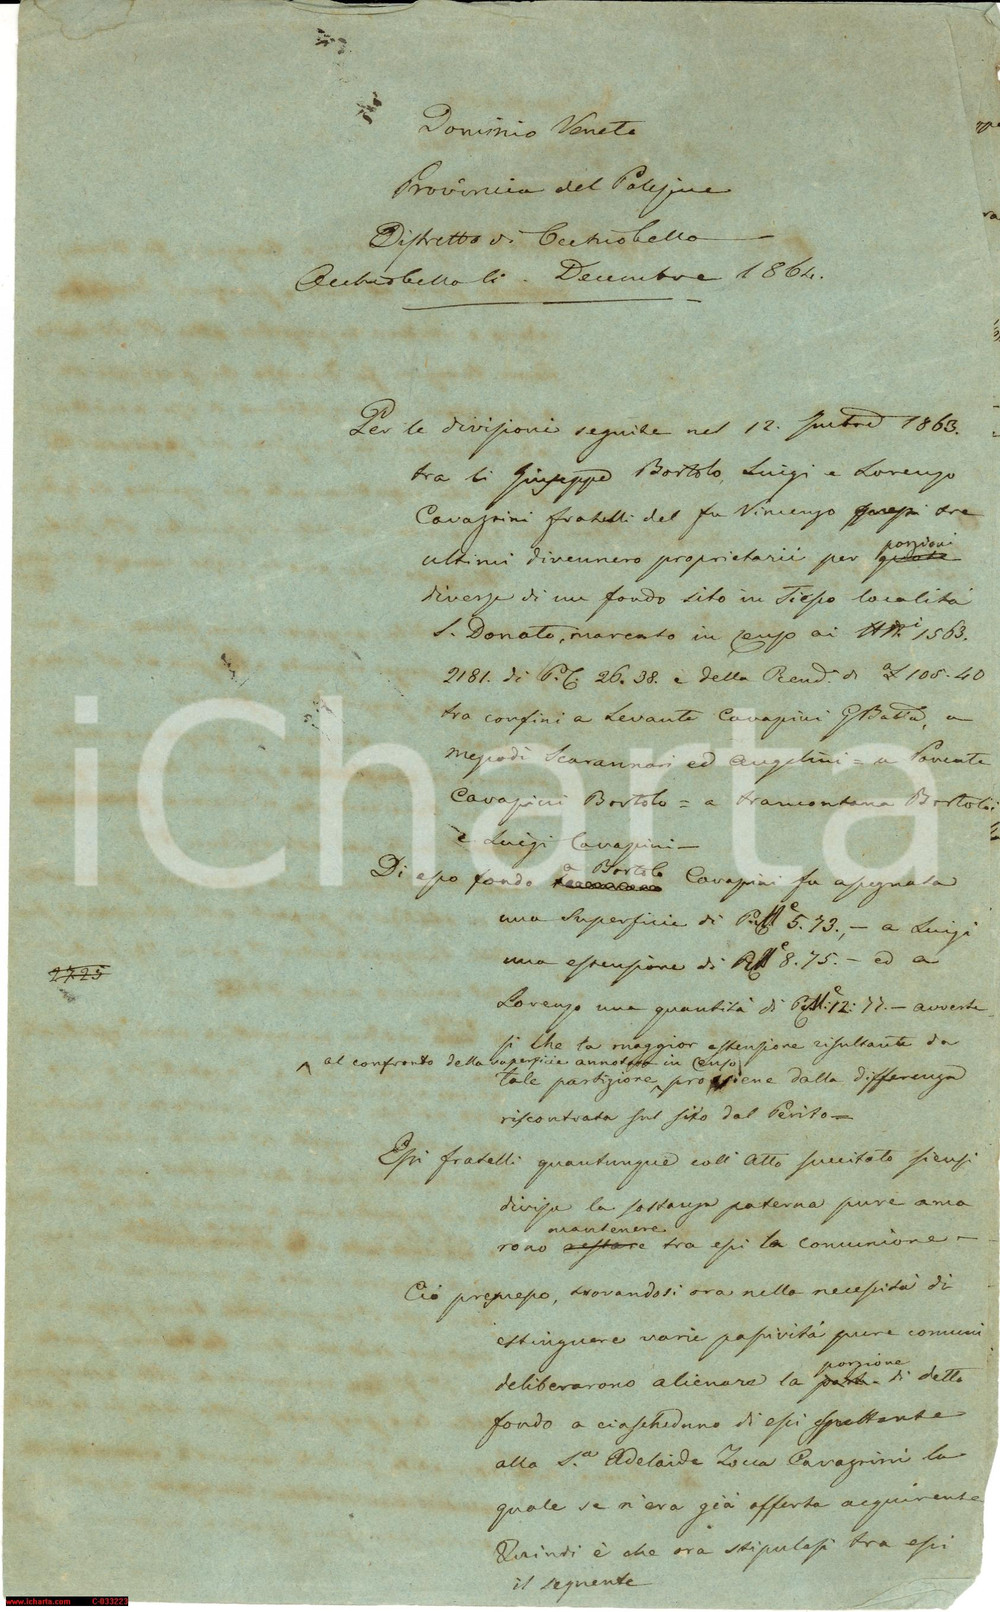 Dominio Veneto
Provincia del Polesine
Distretto di Occhiobello
Occhiobello li . Decembre 1864.
Per le divisioni seguite nel 12. 1863.
tra li Giuseppe Bortolo, Luigi e Lorenzo
Cavazzini fratelli del fu Vincenzo questi tre
ultimi divennero proprietarii per quote porzioni
diverse di un fondo sito in Tiesso località
S. Donato, marcato in censo ai N.ri 1563.
2181. di P.C. 26.38. e della Rend.a di £ 105.40
tra confini a Levante Cavazzini G Batta, a
mezzodì Scarannari ed Angelini = a Ponente
Cavazzini Bortolo = a tramontana Bortolo
e Luigi Cavazzini —
Di esso fondo a Bortolo Cavazzini fu assegnata
una superficie di 5.73., — a Luigi
una estensione di 8.75. — ed a
Lorenzo una quantità di 12.77. — avverte
si che la maggior estensione risultante da
al confronto della superficie annotata in Censo
tale partizione, proviene dalla differenza
riscontrata sul sito dal Perito =
2725
Essi fratelli quantunque coll' Atto succitato siensi
divisa la sostanza paterna pure ama
rono restare mantenere tra essi la comunione —
Ciò premesso, trovandosi ora nella necessità di
estinguere varie passività pure comuni
deliberarono alienare la parte porzione di detto
fondo a ciascheduno di essi spettante
alla S.a Adelaide Zocca Cavazzini la
quale se n'era già offerta acquirente
Quindi è che ora stipulasi tra essi
il seguente
iCharta
www.icharta.com C-033223